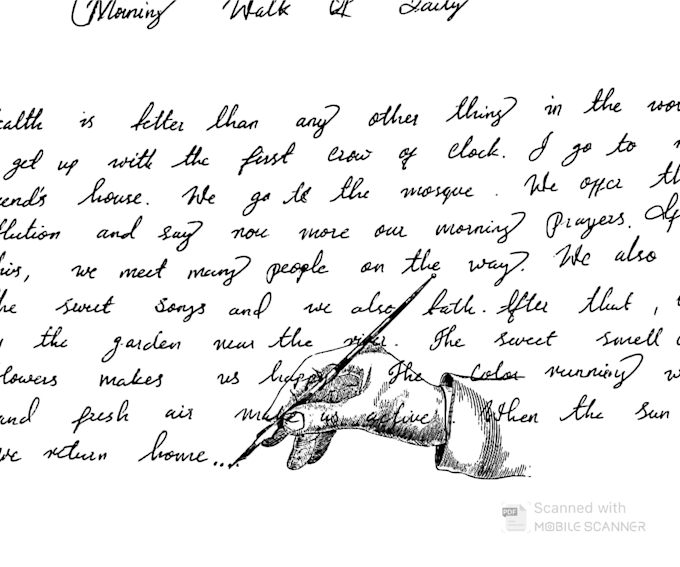 Morning Walk Of Daily
ealth is better than any other thing in the wor
get up with the first crow of clock. I go to
end's house. We go to the mosque. We offer th
blution and say now more our morning Prayers. Af
his, we meet many people on the way. We also
he sweet songs and we also bath. After that,
the garden near the river. The sweet smell
lowers makes us happy The color running w
and fresh air make us active. When the sun
we return home....
Scanned with
MOBILE SCANNER
PDF